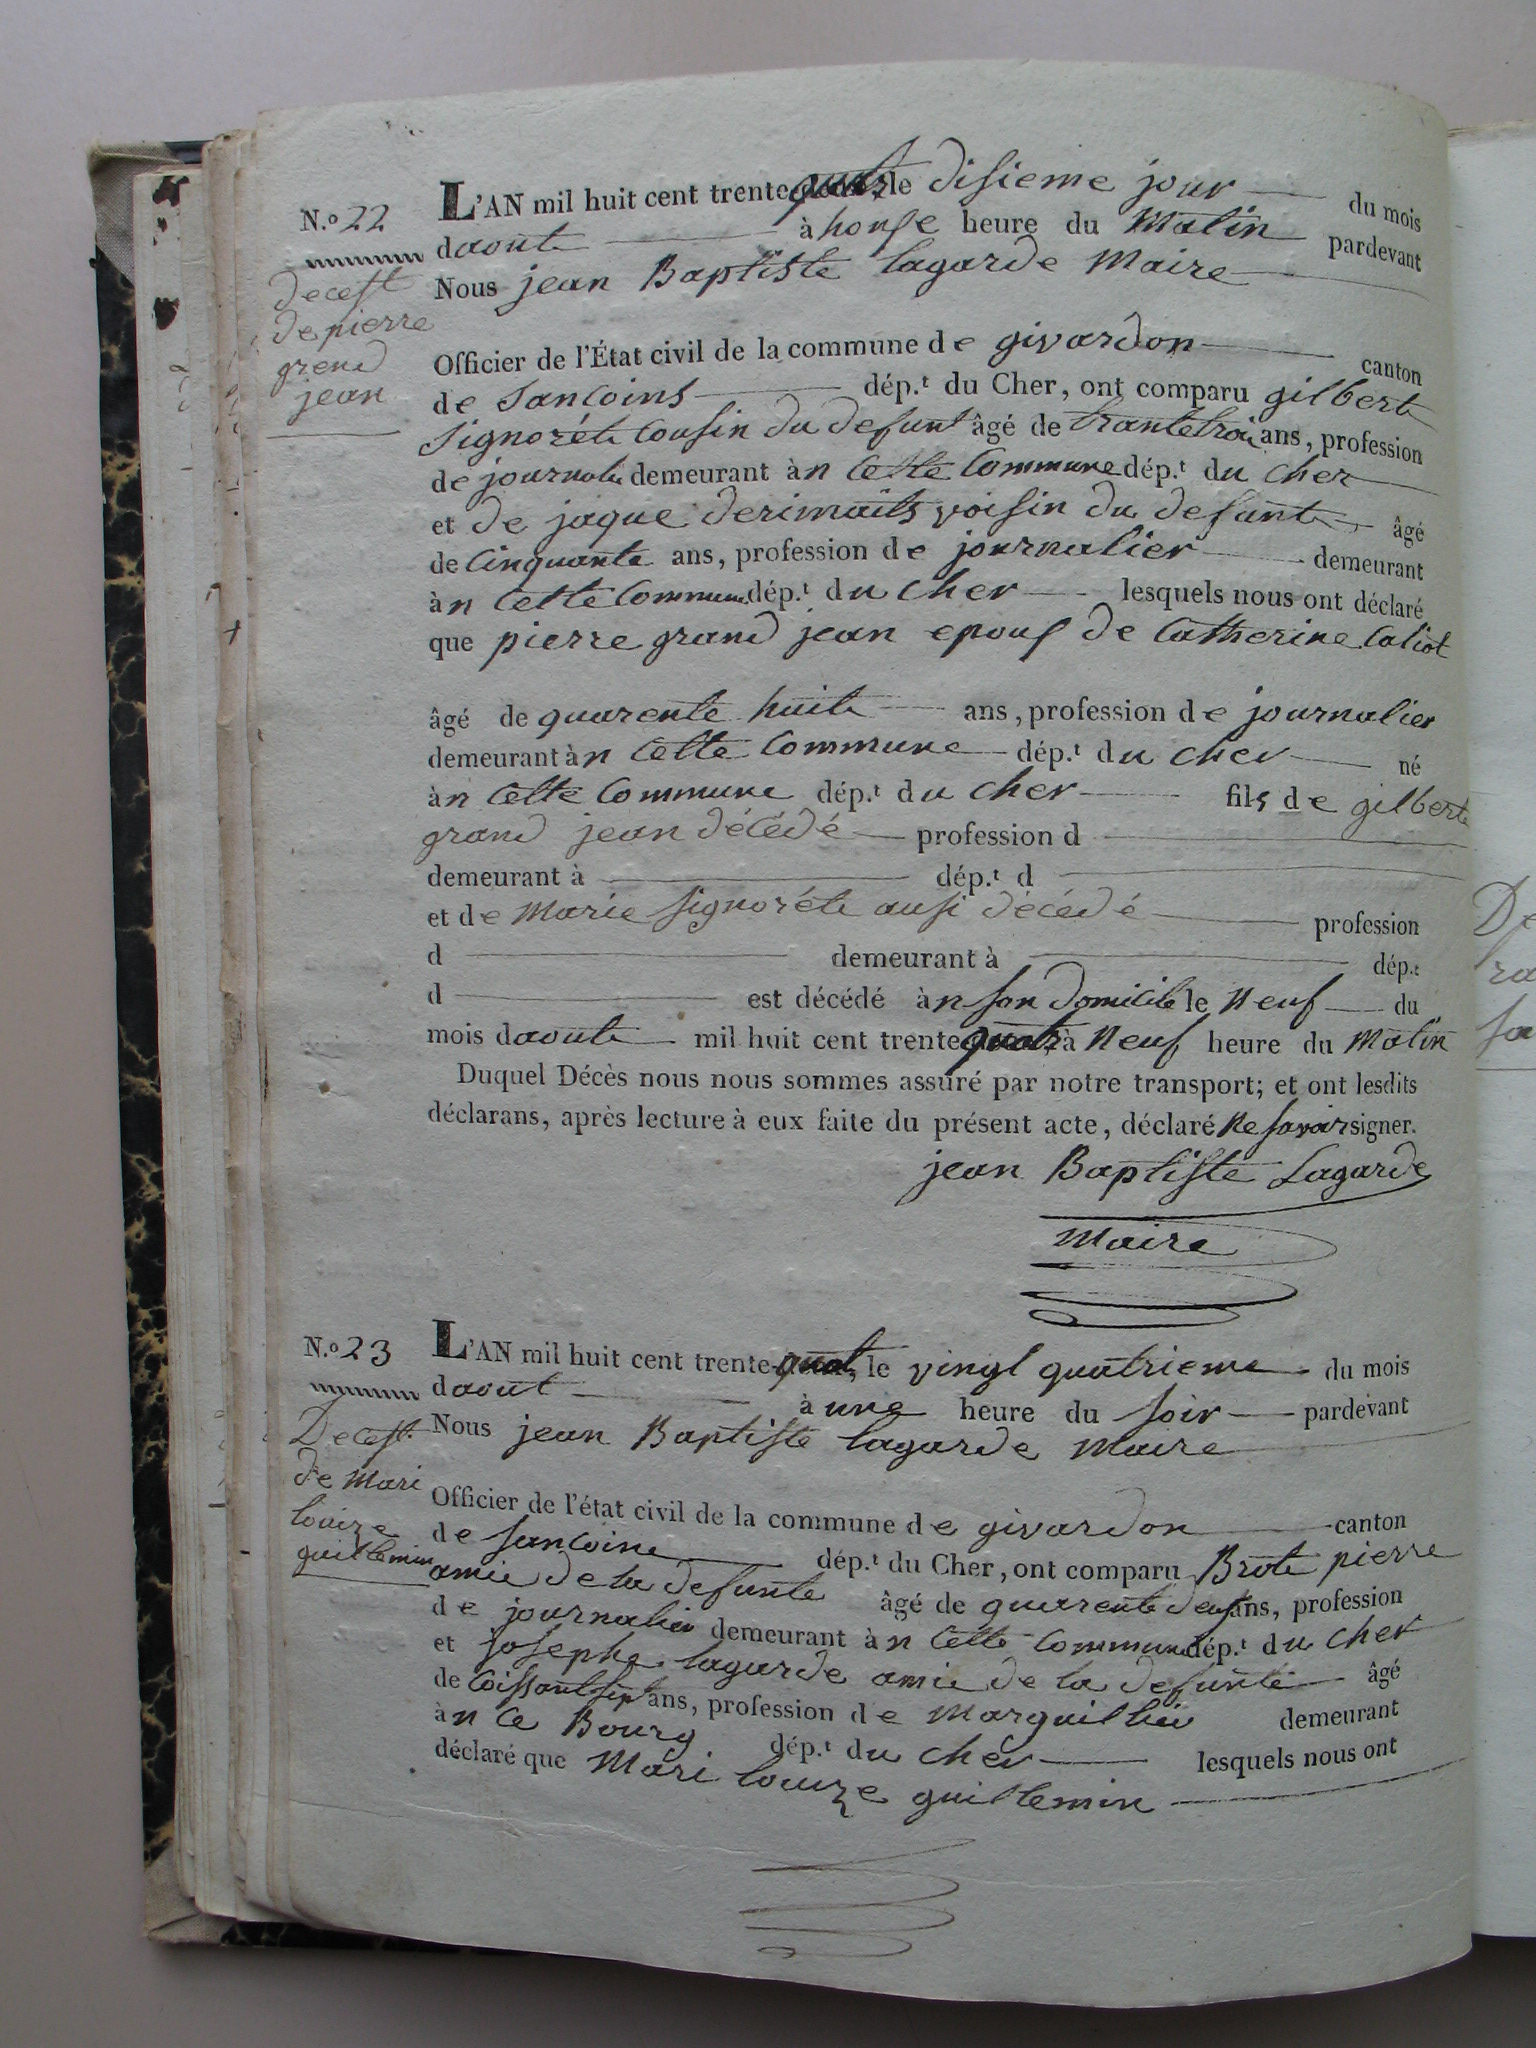 N.o 22
decest
de pierre
grend
jean
L'AN mil huit cent trente quatre le disieme jour du mois
daout à honse heure du matin pardevant
Nous jean Baptiste lagarde Maire
Officier de l'État civil de la commune de givardon canton
de Sancoins dép.t du Cher, ont comparu gilberte
Signoréte Cousin du defunt âgé de trantetrois ans, profession
de journalie demeurant àn cette Commune dép.t du cher
et de jaque derimaits voisin du defunt âgé
de Cinquante ans, profession de journalier demeurant
àn Cette Commune dép.t du cher lesquels nous ont déclaré
que pierre grand jean epous de Catherine Caliot
âgé de quarente huite ans, profession de journalier
demeurant àn Cette Commune dép.t du cher né
àn Cette Commune dép.t du cher fils de gilberte
grand jean décédé profession d
demeurant à dép.t d
et de Marie Signoréte ausi décédé profession
d demeurant à dép.t
d est décédé àn son domicile le Neuf du
mois daoute mil huit cent trente quatre à Neuf heure du Matin
Duquel Décès nous nous sommes assuré par notre transport; et ont lesdits
déclarans, après lecture à eux faite du présent acte, déclaré Ne savoir signer.
jean Baptiste Lagarde
Maire
N.o 23
Decest
de Mari
louize
guillemin
L'AN mil huit cent trente-quat, le vingt quatrieme du mois
daout à une heure du soir pardevant
Nous jean Baptiste lagarde Maire
Officier de l'état civil de la commune de givardon canton
de sancoine dép.t du Cher, ont comparu Brote pierre
amie de la defunte âgé de quarente deus ans, profession
de journalier demeurant àn Cette Commune dép.t du cher
et josephe lagarde amie de la defunte âgé
de Coissantsept ans, profession de Marguillier demeurant
àn Ce Bourg dép.t du cher lesquels nous ont
déclaré que Mari louize guillemin